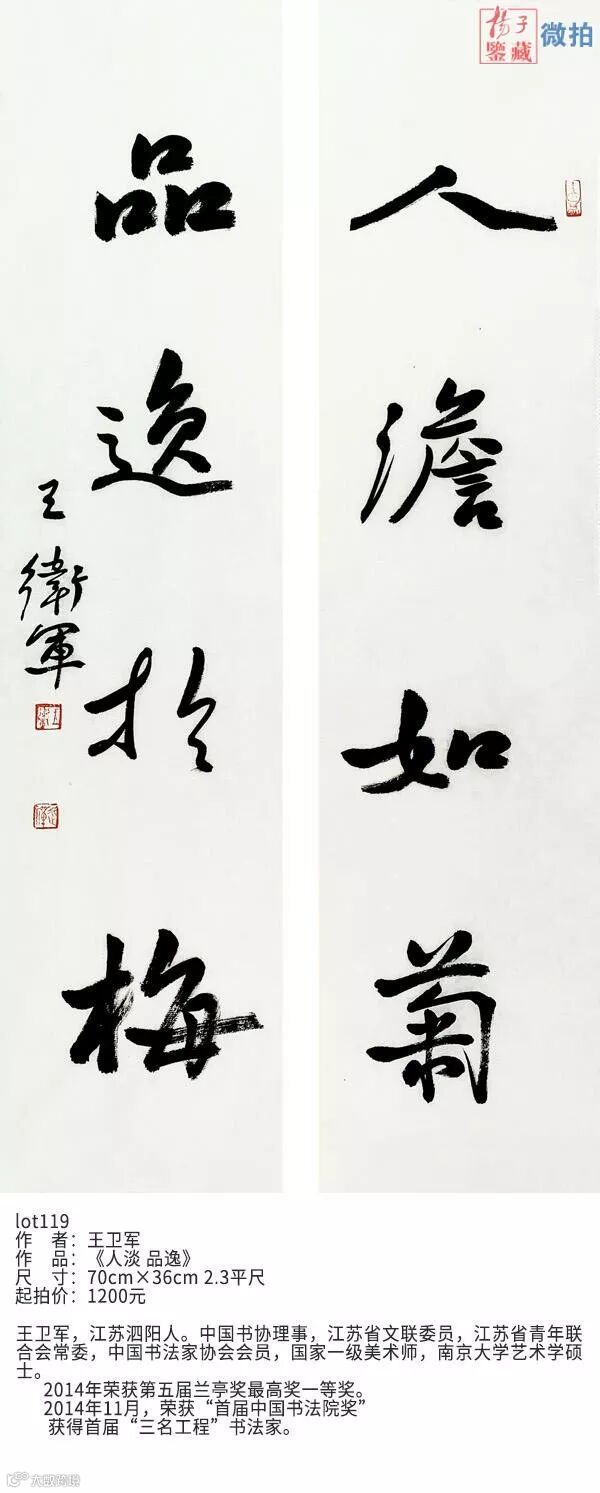 楊子
鑒藏
微拍
人澹如菊
品逸於梅
王衛軍
lot119
作 者：王卫军
作 品：《人淡 品逸》
尺 寸：70cm×36cm 2.3平尺
起拍价：1200元
王卫军，江苏泗阳人。中国书协理事，江苏省文联委员，江苏省青年联
合会常委，中国书法家协会会员，国家一级美术师，南京大学艺术学硕
士。
2014年荣获第五届兰亭奖最高奖一等奖。
2014年11月，荣获“首届中国书法院奖”
获得首届“三名工程”书法家。
大家跨境